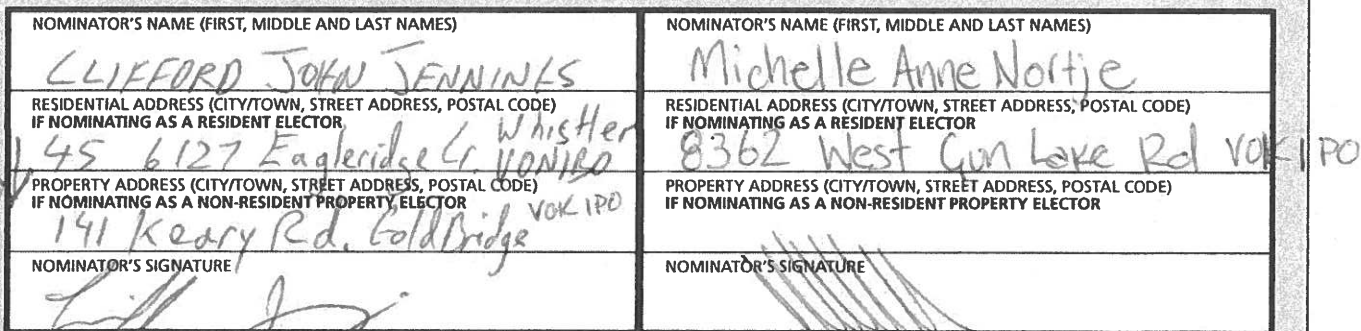 NOMINATOR'S NAME (FIRST, MIDDLE AND LAST NAMES)
CLIFFORD JOHN JENNINGS
RESIDENTIAL ADDRESS (CITY/TOWN, STREET ADDRESS, POSTAL CODE)
IF NOMINATING AS A RESIDENT ELECTOR
Whistler
45 6127 Eagleridge Cr. V0N1B0
PROPERTY ADDRESS (CITY/TOWN, STREET ADDRESS, POSTAL CODE)
IF NOMINATING AS A NON-RESIDENT PROPERTY ELECTOR
141 Keary Rd. Gold Bridge V0K 1P0
NOMINATOR'S SIGNATURE
NOMINATOR'S NAME (FIRST, MIDDLE AND LAST NAMES)
Michelle Anne Nortje
RESIDENTIAL ADDRESS (CITY/TOWN, STREET ADDRESS, POSTAL CODE)
IF NOMINATING AS A RESIDENT ELECTOR
8362 West Gun Lake Rd V0K 1P0
PROPERTY ADDRESS (CITY/TOWN, STREET ADDRESS, POSTAL CODE)
IF NOMINATING AS A NON-RESIDENT PROPERTY ELECTOR
NOMINATOR'S SIGNATURE